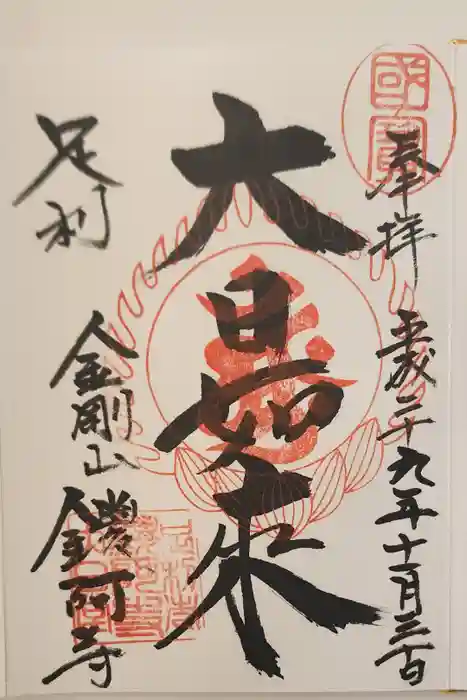 國寶
奉拝
平成二十九年十一月三日
大日如来
足利
金剛山
鑁阿寺